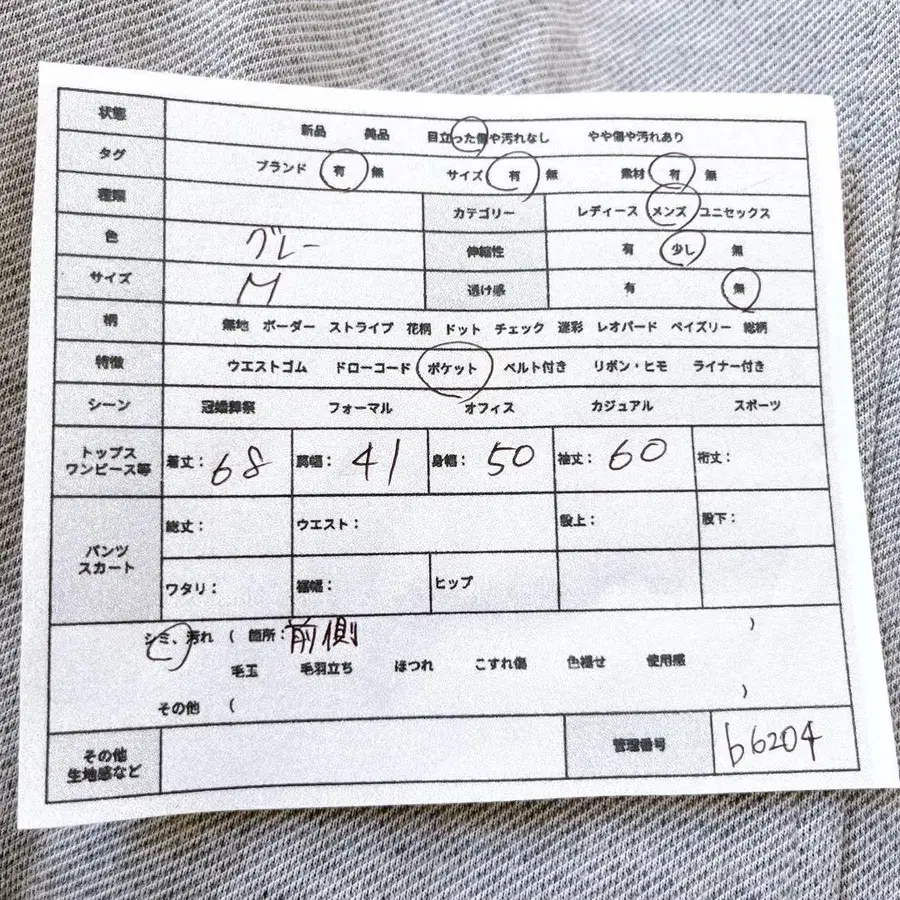 状態 新品 美品 目立った傷や汚れなし やや傷や汚れあり
タグ ブランド 有 無 サイズ 有 無 素材 有 無
種類 カテゴリー レディース メンズ ユニセックス
色 グレー 伸縮性 有 少し 無
サイズ M 透け感 有 無
柄 無地 ボーダー ストライプ 花柄 ドット チェック 迷彩 レオパード ペイズリー 総柄
特徴 ウエストゴム ドローコード ポケット ベルト付き リボン・ヒモ ライナー付き
シーン 冠婚葬祭 フォーマル オフィス カジュアル スポーツ
トップス
ワンピース等 着丈: 68 肩幅: 41 身幅: 50 袖丈: 60 裄丈:
総丈: ウエスト: 股上: 股下:
パンツ
スカート
ワタリ: 裾幅: ヒップ
シミ、汚れ ( 箇所:前側 )
毛玉 毛羽立ち ほつれ こすれ傷 色褪せ 使用感
その他 ( )
その他
生地感など 管理番号 b6204